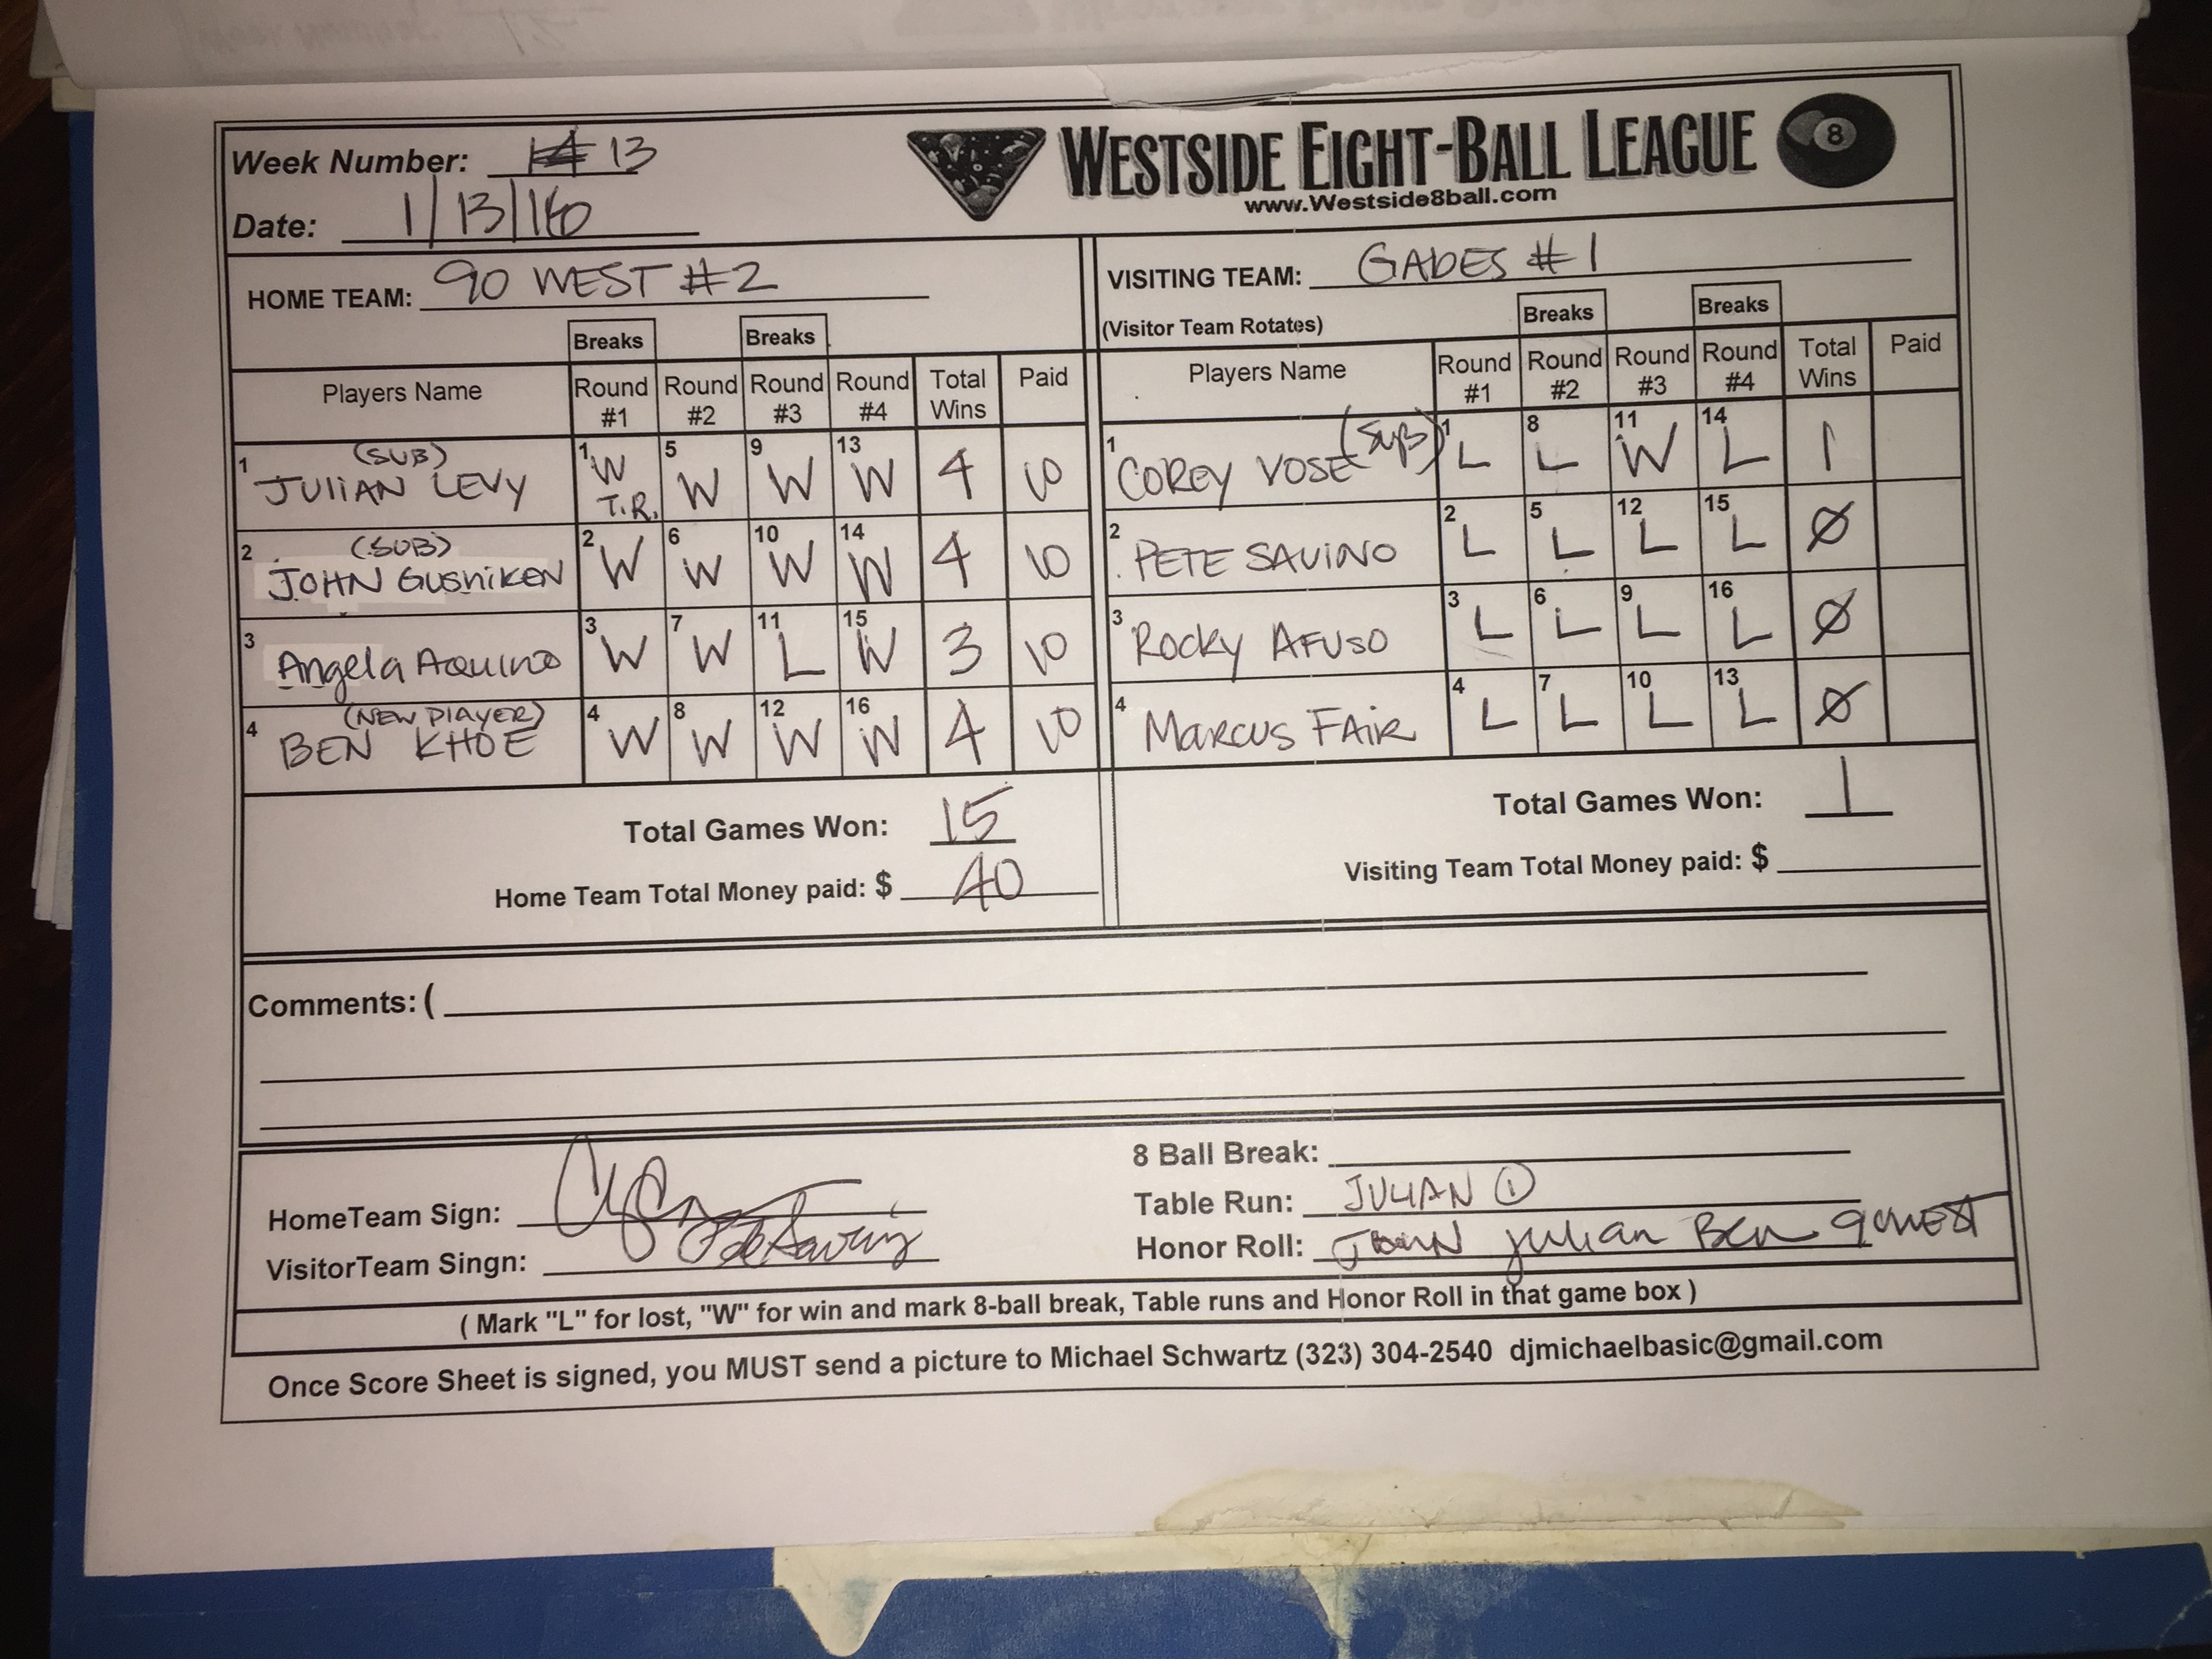 Week Number: 13
WESTSIDE EIGHT-BALL LEAGUE
8
www.Westside8ball.com
Date: 1/13/16
HOME TEAM: 90 WEST #2
Breaks Breaks
Players Name Round #1 Round #2 Round #3 Round #4 Total Wins Paid
1 (SUB) JULIAN LEVY 1 W T.R. 5 W 9 W 13 W 4 10
2 (SUB) JOHN GUSHIKEN 2 W 6 W 10 W 14 W 4 10
3 Angela Aquino 3 W 7 W 11 L 15 W 3 10
4 (NEW PLAYER) BEN KHOE 4 W 8 W 12 W 16 W 4 10
Total Games Won: 15
Home Team Total Money paid: $ 40
VISITING TEAM: GABES #1
(Visitor Team Rotates) Breaks Breaks
Players Name Round #1 Round #2 Round #3 Round #4 Total Wins Paid
1 COREY VOSE (SUB) 1 L 8 L 11 W 14 L 1
2 PETE SAVINO 2 L 5 L 12 L 15 L Ø
3 ROCKY AFUSO 3 L 6 L 9 L 16 L Ø
4 MARCUS FAIR 4 L 7 L 10 L 13 L Ø
Total Games Won: 1
Visiting Team Total Money paid: $
Comments: (
HomeTeam Sign:
VisitorTeam Singn: Pete Savino
8 Ball Break:
Table Run: JULIAN ①
Honor Roll: JOHN Julian Ben 90WEST
( Mark "L" for lost, "W" for win and mark 8-ball break, Table runs and Honor Roll in that game box )
Once Score Sheet is signed, you MUST send a picture to Michael Schwartz (323) 304-2540 djmichaelbasic@gmail.com